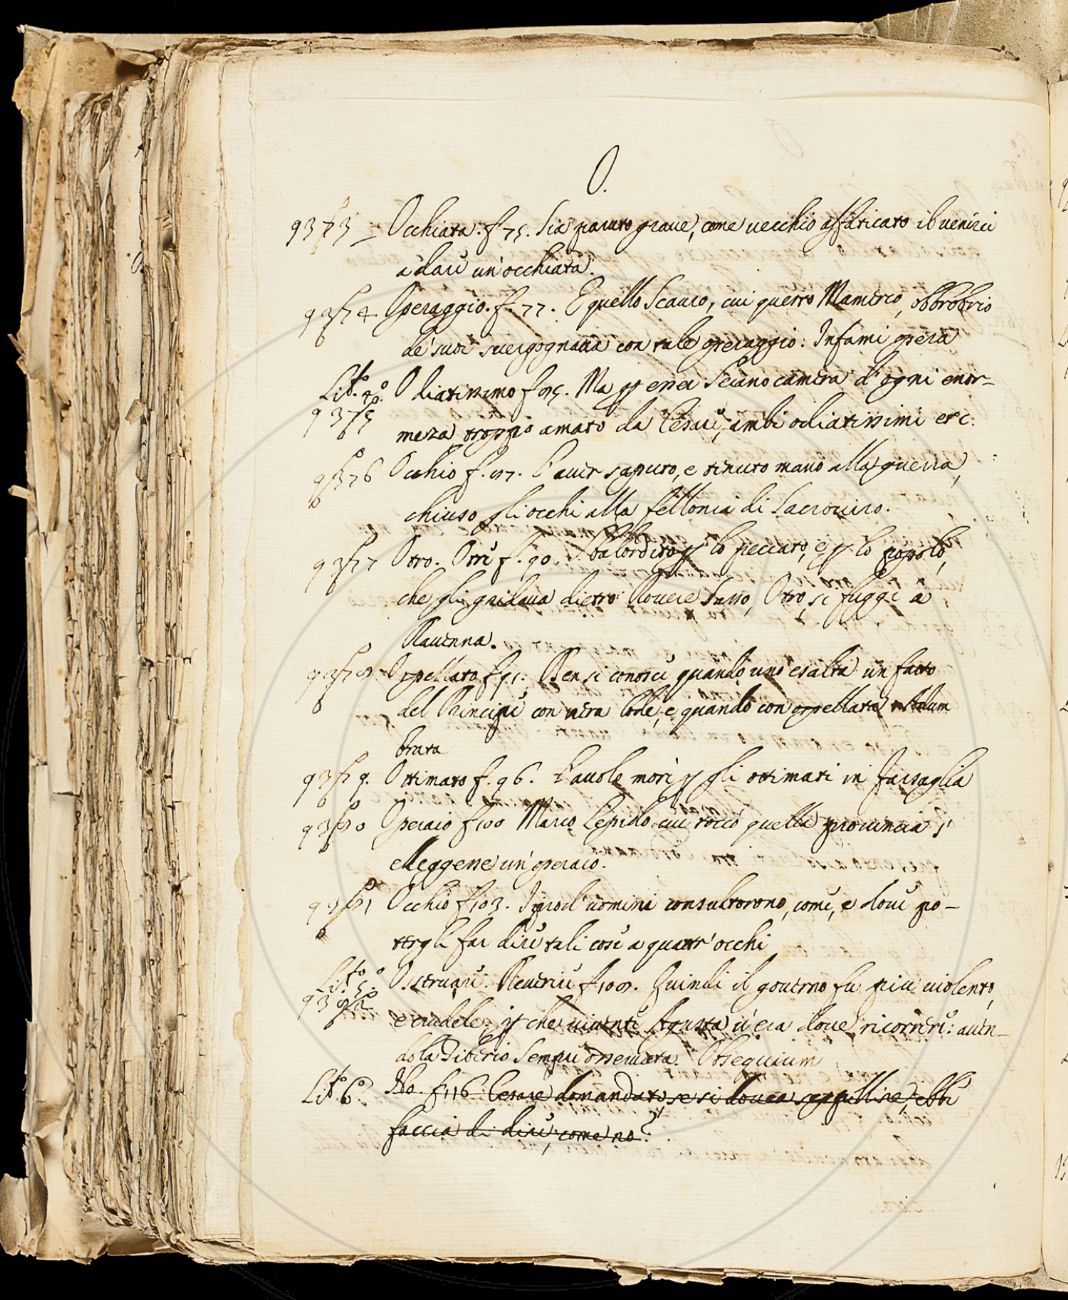 O.
9373 Occhiata. f. 75. Sia paruto graue, come vecchio affaticato il venirci
a dare un'occhiata.
9374. Operaggio. f. 77. E quello Scauro, cui quetto Mamerco, obbrobrio
de' suoi svergognaua con tale operaggio: Infami opera
Lib.º 4.º Odiatissimo f. 95. Ma per esser Seiano camera d'ogni enor-
9375 mezza troppo amato da Cesare, ambi odiatissimi etc.
9376 Occhio f. 97. L'auer saputo, e tenuto mano alla guerra,
chiuso gli occhi alla fellonia di Sacrouiro.
9377 Otro. Otri f. 90. balordito per lo peccato, e per lo popolo,
che gli gridaua dietro Sasso, Otro, si fuggì a
Rauenna.
9378 Orpellato f. 95. Ben si conosce quando uno esalta un fatto
del Principe con vera lode, e quando con orpellata
brata
9379. Ottimato f. 96. L'auolo morì per gli ottimati in Farsaglia
9380 Operaio f. 100 Marco Lepido cui toccò quella prouincia,
elleggesse un'operaio.
9381 Occhio f. 103. I prod'uomini consultorono, come, e doue po-
tergli far dire tali cose a quattr'occhi
Lib.º 5.º Osseruare. f. 109. Quindi il gouerno fu più violento,
9382 e crudele; per che viuente Agusta u'era doue ricorrere: auen-
dola Tiberio sempre osseruata. Obsequium
Lib.º 6.º No. f. 116. Cesare domandato se si douea seppellire, ebbe
faccia di dire, come no?